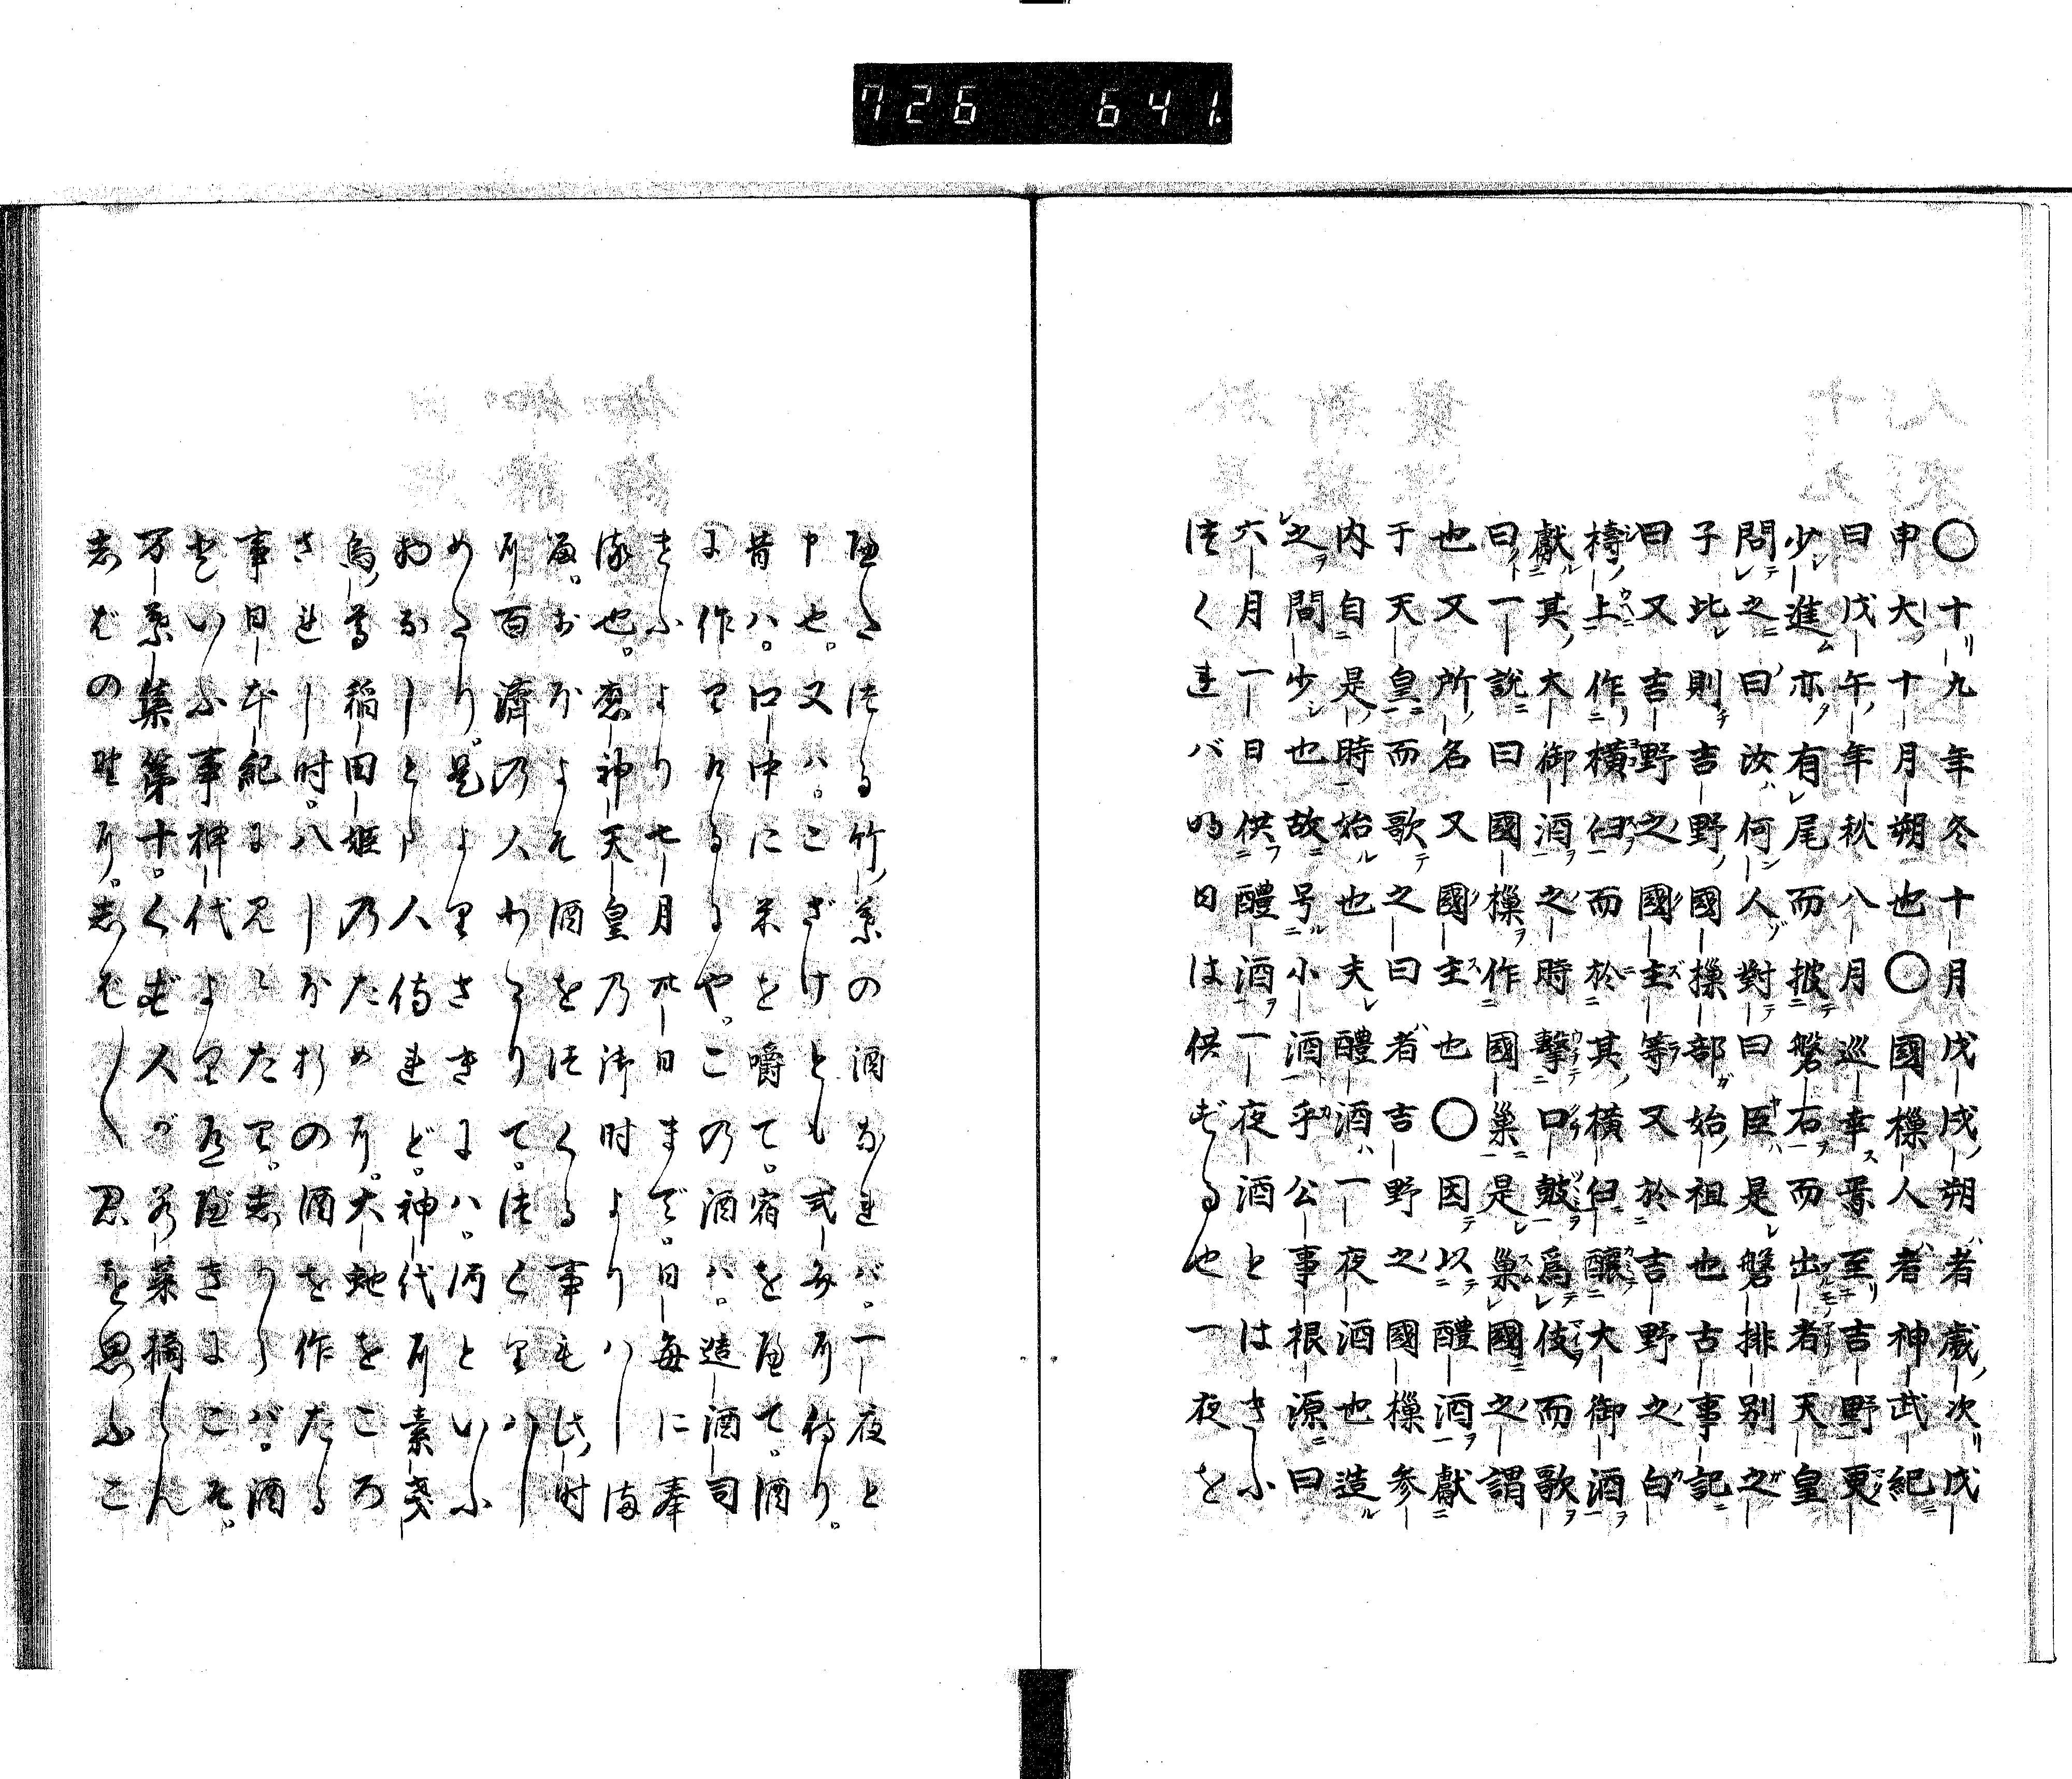 ○十九年冬十月戊戌朔者歳次戊
申大十月朔也○國樔人者神武紀
曰戊午年秋八月巡幸焉至吉野更
少進亦有尾而披磐石而出者天皇
問之曰汝何人對曰臣是磐排別之
子此則吉野國樔部始祖也古事記
曰又吉野之國主等又於吉野之白
檮上作横臼而於其横臼釀大御酒
獻其大御酒之時擊口鼓爲伎而歌
曰一說曰國樔作國巢是巢國之謂
也又所名又國主也○因以醴酒獻
于天皇而歌之曰者吉野之國樔參
内自是時始也夫醴酒一夜酒也造
之間少也故号小酒乎公事根源曰
六月一日供醴酒一夜酒とはきふ
つくれバ明日は供ずる也一夜を
隔つる竹葉の酒なれバ。一夜と
申也。又ハ。こざけとも式に侍り。
昔ハ。口中に米を嚼て。宿を隔て。酒
に作りけるにや。この酒ハ。造酒司
きふより七月卅日まで。日毎に奉
る也。應神天皇乃御時よりハじま
る。おほよそ酒をつくる事も此時
に百濟乃人わたりて。つくりハじ
めたり。是よりさきにハ。酒といふ
物なしと人侍れど。神代に素戔
烏尊稲田姫乃ために。大蛇をころ
されし時。八しほ折の酒を作たる
事日本紀に見えたり。しからバ。酒
といふ事神代よりきにこそ。
万葉集第十。くず人が若菜摘らん
しばの野に。しばしば君を思ふこ